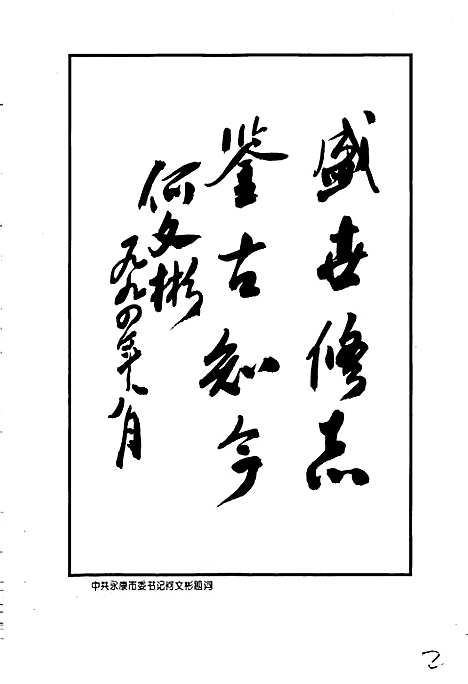 盛世修志
鉴古知今
何文彬
一九九四年十八月
中共永康市委书记何文彬题词
2